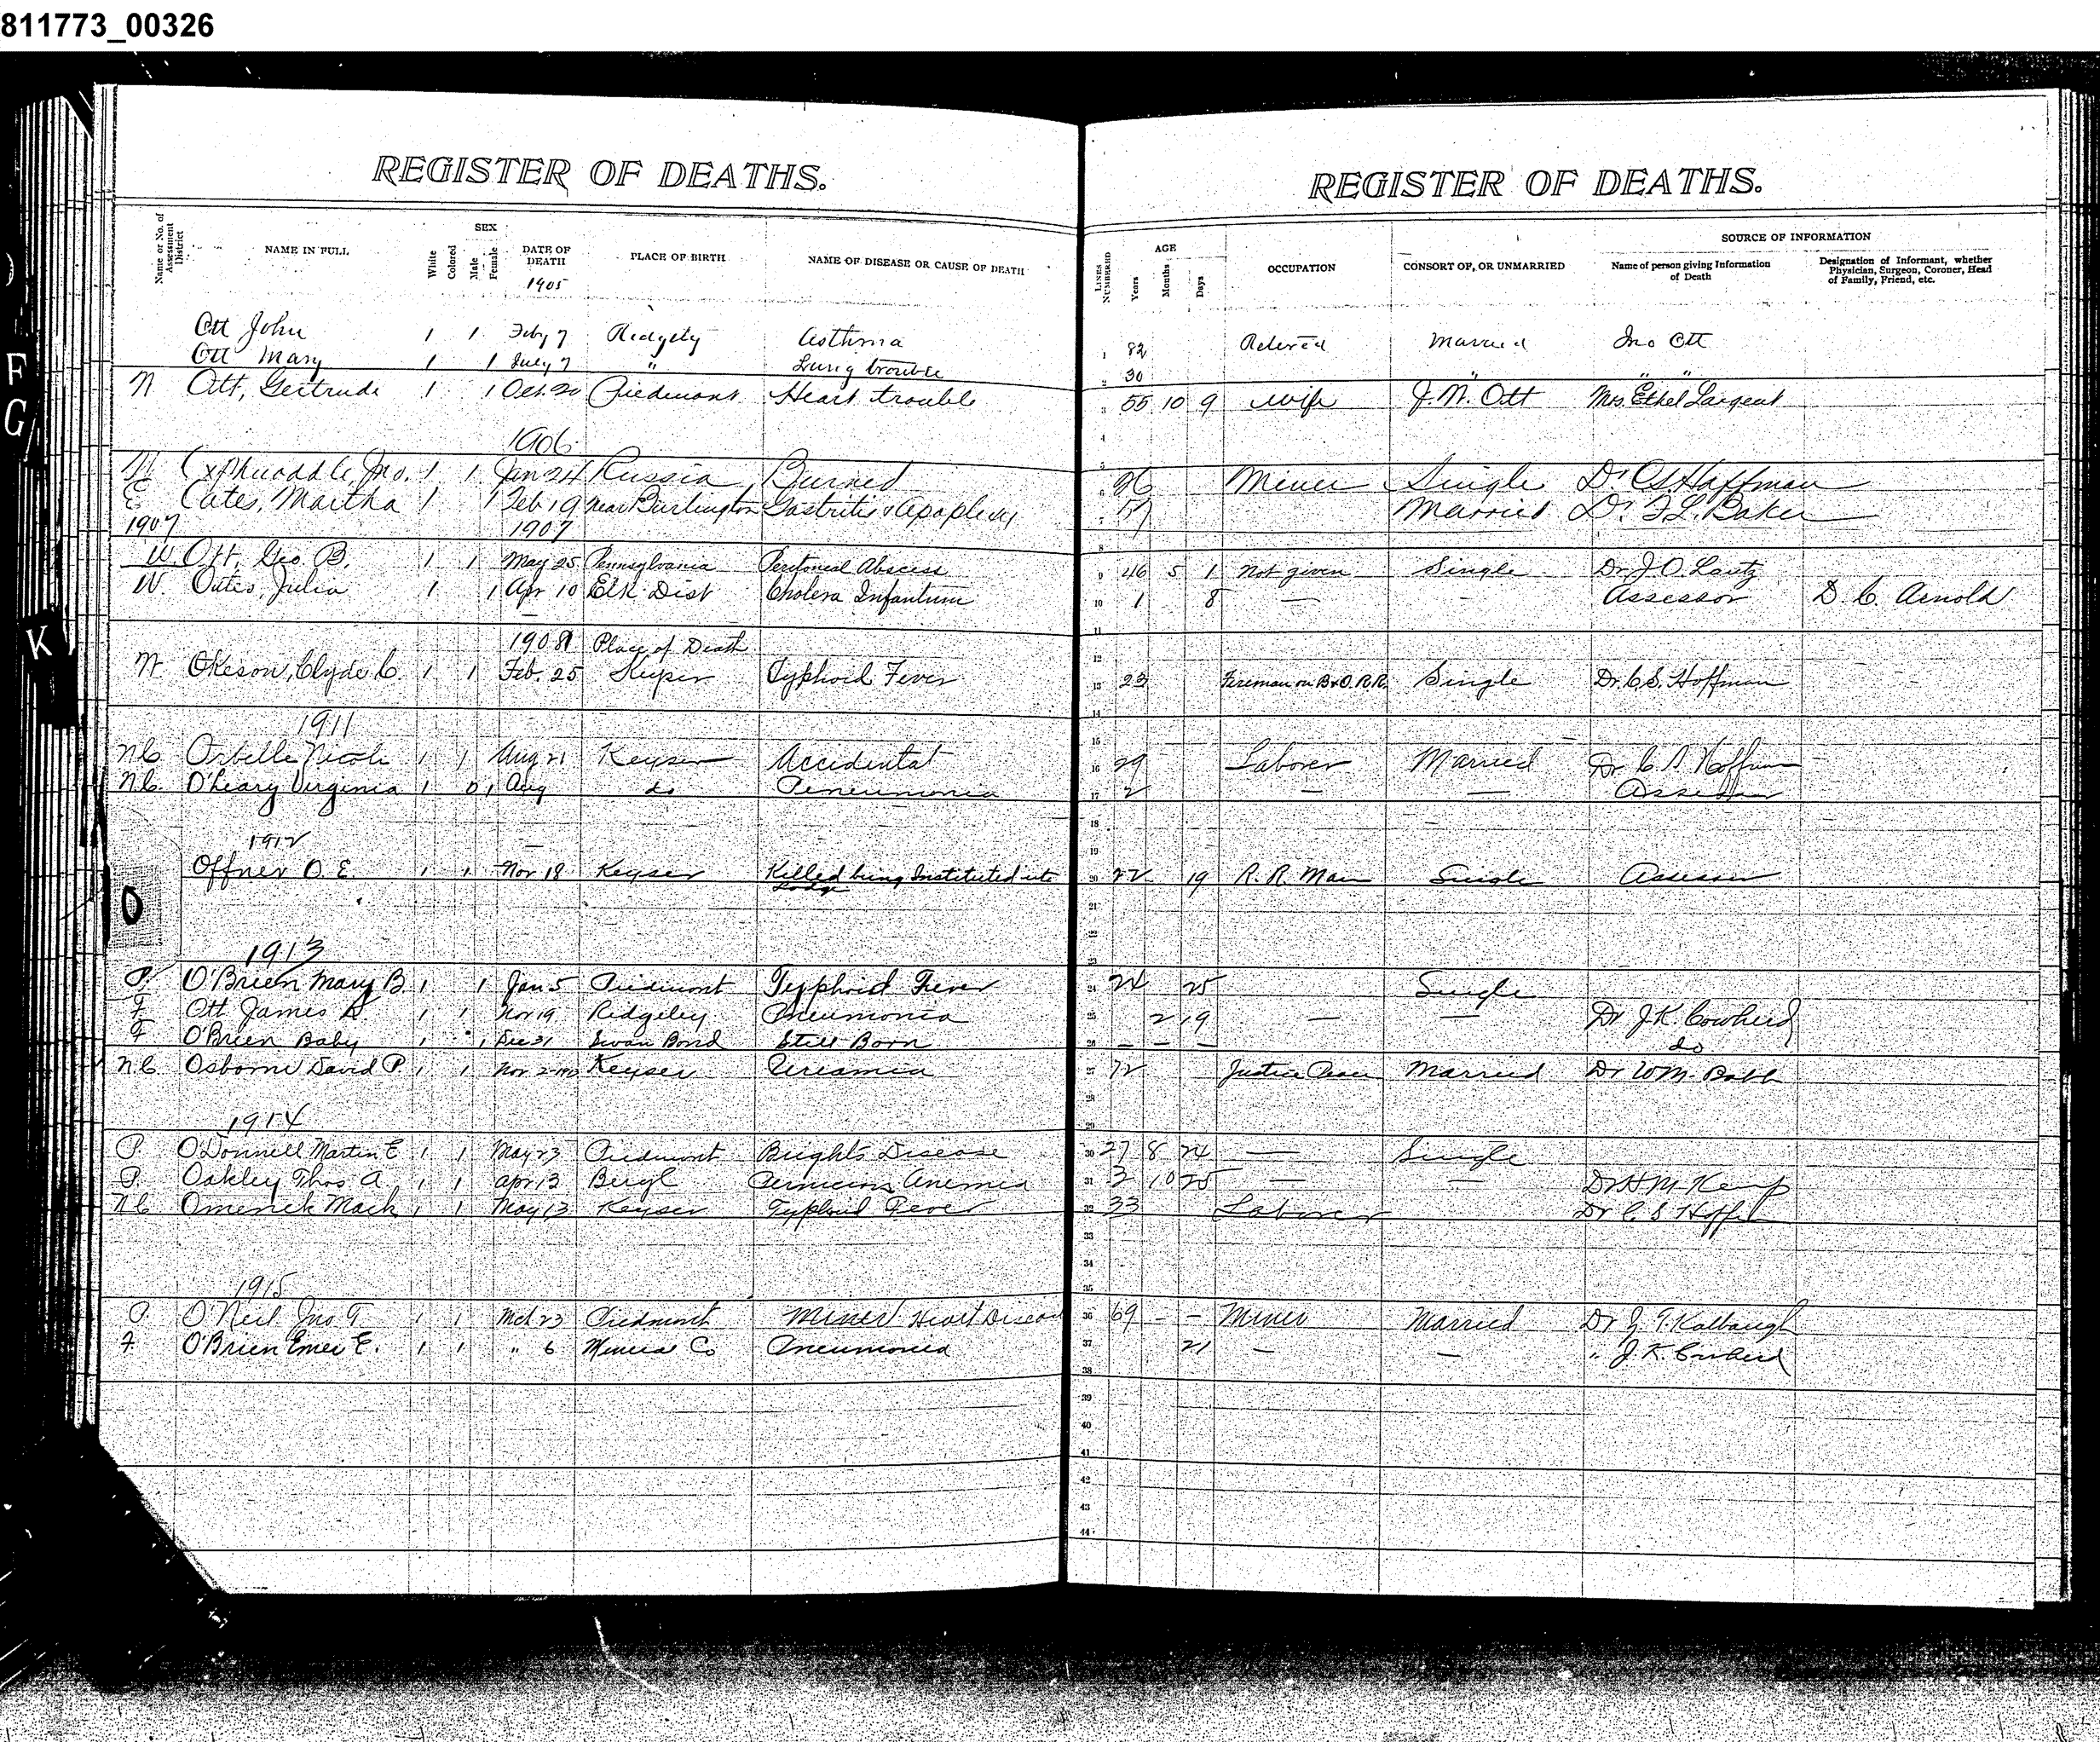 811773_00326
REGISTER OF DEATHS.
Name or No. of Assessment District
NAME IN FULL
White
Colored
SEX
Male
Female
DATE OF DEATH
1905
PLACE OF BIRTH
NAME OF DISEASE OR CAUSE OF DEATH
Ott John 1 1 Feby 7 Ridgely Asthma
Ott Mary 1 1 July 7 " Lung trouble
N Ott, Gertrude 1 1 Oct. 20 Piedmont Heart trouble
1906
Jno. 1 1 Jan 24 Russia Burned
E Oates, Martha 1 1 Feb 19 near Burlington Gastritis & Apoplexy
1907 1907
W. Ott, Geo B. 1 1 May 25 Pennsylvania Peritoneal Abscess
W. Oates, Julia 1 1 Apr 10 Elk Dist Cholera Infantum
1908 Place of Death
N. Okeson, Clyde C. 1 1 Feb. 25 Keyser Typhoid Fever
1911
N C Nicola 1 1 Aug 21 Keyser Accidental
N.C. O'Leary Virginia 1 0 1 Aug do Peneumonia
1912
Offner O. E. 1 1 Nov 18 Keyser Killed being Instituted into
Lodge
1913
P. O'Brien Mary B. 1 1 Jan 5 Piedmont Typhoid Fever
F Ott James 1 1 Nov 19 Ridgeley Pneumonia
F O'Brien Baby 1 1 Dec 31 Swan Pond Still Born
N.C. Osborne David P. 1 1 Nov 2 Keyser
1914
P. O'Donnell Martin E 1 1 May 23 Piedmont Brights Disease
P. Oakley Thos A. 1 1 Apr 13 Beryl Pernicious Anemia
N C Mack 1 1 May 13 Keyser Typhoid Fever
1915
P. O'Neil Jno T 1 1 Mch 23 Piedmont Miner Heart Disease
F. O'Brien E. 1 1 " 6 Mineral Co Pneumonia
REGISTER OF DEATHS.
LINES NUMBERED
AGE
Years
Months
Days
OCCUPATION
CONSORT OF, OR UNMARRIED
SOURCE OF INFORMATION
Name of person giving Information of Death
Designation of Informant, whether Physician, Surgeon, Coroner, Head of Family, Friend, etc.
1 82 Retired Married Jno Ott
2 30 " " "
3 55 10 9 wife J. W. Ott Mrs. Ethel Largent
4
5
6 26 Miner Single Dr C S Hoffman
7 Married Dr. F. L. Baker
8
9 46 5 1 Not given Single Dr J. O. Lantz
10 1 8 — - Assessor D. C. Arnold
11
12
13 23 Fireman on B&O. R.R. Single Dr. C. S. Hoffman
14
15
16 29 Laborer Married Dr C. S Hoffman
17 2 — — Assessor
18
19
20 22 19 R. R. Man Single Assessor
21
22
23
24 24 25 Single
25 2 19 — — Dr J. K. Cowherd
26 — — — do
27 72 Justice Peace Married Dr W M. Babb
28
29
30 27 8 24 — Single
31 3 10 25 — — Dr H M. Kemp
32 33 Laborer Dr C. S
33
34
35
36 69 - - Miner Married Dr Z. T. Kalbaugh
37 21 — — " J. K. Cowherd
38
39
40
41
42
43
44
F
G
K
O